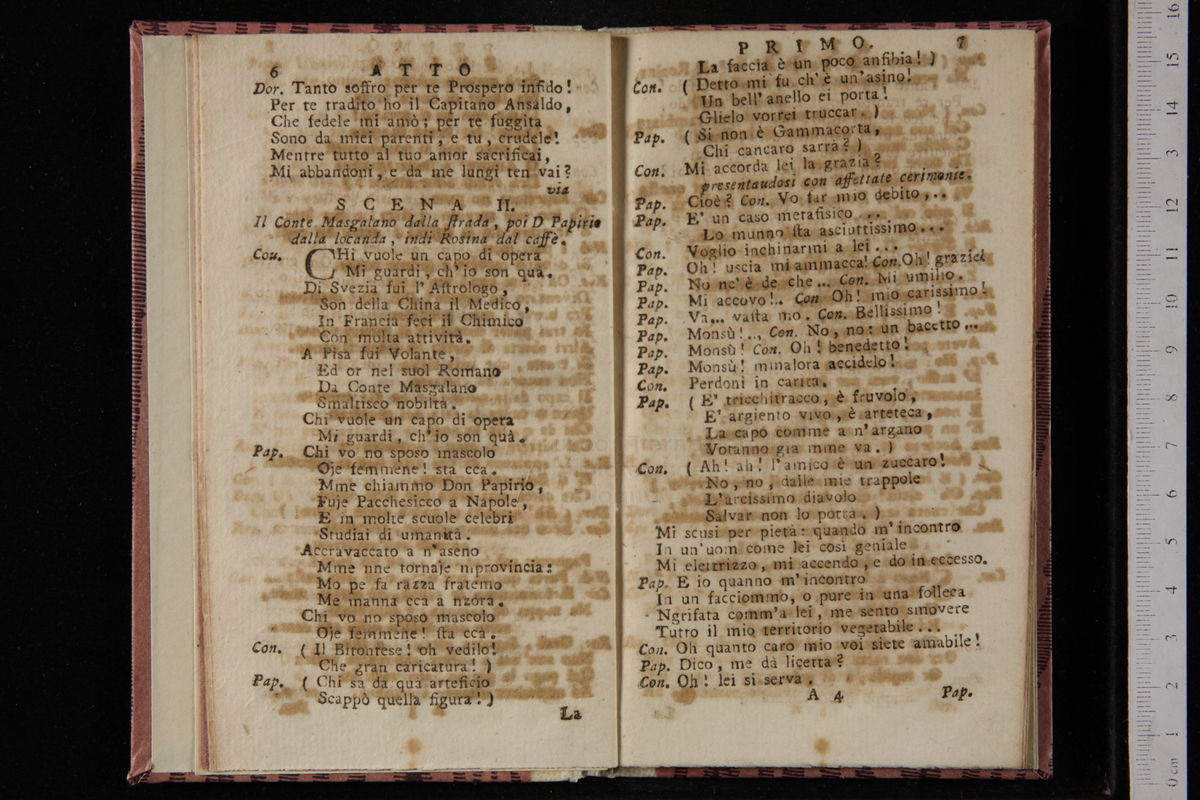 6 ATTO
Dor. Tanto soffro per te Prospero infido!
Per te tradito ho il Capitano Ansaldo,
Che fedele mi amò; per te fuggita
Sono da miei parenti, e tu, crudele!
Mentre tutto al tuo amor sacrificai,
Mi abbandoni, e da me lungi ten vai?
via
SCENA II.
Il Conte Masgalano dalla ſtrada, poi D Papirio
dalla locanda, indi Rosina dal caffè.
Cou. CHi vuole un capo di opera
Mi guardi, ch'io son quà.
Di Svezia fui l'Aſtrologo,
Son della China il Medico,
In Francia feci il Chimico
Con molta attività.
A Pisa fui Volante,
Ed or nel suol Romano
Da Conte Masgalano
Smaltisco nobiltà.
Chi vuole un capo di opera
Mi guardi, ch'io son quà.
Pap. Chi vo no sposo mascolo
Oje femmene! sta ccà.
Mme chiammo Don Papirio,
Fuje Pacchesicco a Napole,
E in molte scuole celebri
Studiai di umanità.
Accravaccato a n'aseno
Mme nne tornaje mprovincia:
Mo pe fa razza fratemo
Me manna cca a nzorà.
Chi vo no sposo mascolo
Oje femmene! ſta ccà.
Con. (Il Bitontese! oh vedilo!
Che gran caricatura!)
Pap. (Chi sa da qua arteficio
Scappò quella figura!)
La
PRIMO. 7
La faccia è un poco anfibia!)
Con. (Detto mi fu ch'è un'asino!
Un bell'anello ei porta!
Glielo vorrei truccar.)
Pap. (Si non è Gammacorta,
Chi cancaro sarrà?)
Con. Mi accorda lei la grazia?
presentaudosi con affettate cerimonie.
Pap. Cioè? Con. Vo far mio debito,..
Pap. E' un caso metafisico...
Lo munno ſta asciuttissimo...
Con. Voglio inchinarmi a lei...
Pap. Oh! uscia mi ammacca! Con. Oh! grazie!
Pap. No nc'è de che... Con. Mi umilio.
Pap. Mi accovo!.. Con Oh! mio carissimo!
Pap. Va... vaſta mo. Con. Bellissimo!
Pap. Monsù!.., Con. No, no: un bacetto...
Pap. Monsù! Con. Oh! benedetto!
Pap. Monsù! mmalora accidelo!
Con. Perdoni in carità.
Pap. (E' tricchitracco, è fruvolo,
E' argiento vivo, è arteteca,
La capo comme a n'argano
Votanno già mme va.)
Con. (Ah! ah! l'amico è un zuccaro!
No, no, dalle mie trappole
L'arcissimo diavolo
Salvar non lo potrà.)
Mi scusi per pietà: quando m'incontro
In un'uom come lei così geniale
Mi elettrizzo, mi accendo, e do in eccesso.
Pap. E io quanno m'incontro
In un facciommo, o pure in una folleca
Ngrifata comm'a lei, me sento smovere
Tutto il mio territorio vegetabile...
Con. Oh quanto caro mio voi siete amabile!
Pap. Dico, me dà licetta?
Con. Oh! lei si serva.
A 4 Pap.
16
15
14
13
12
11
10
9
8
7
6
5
4
3
2
1
0 cm